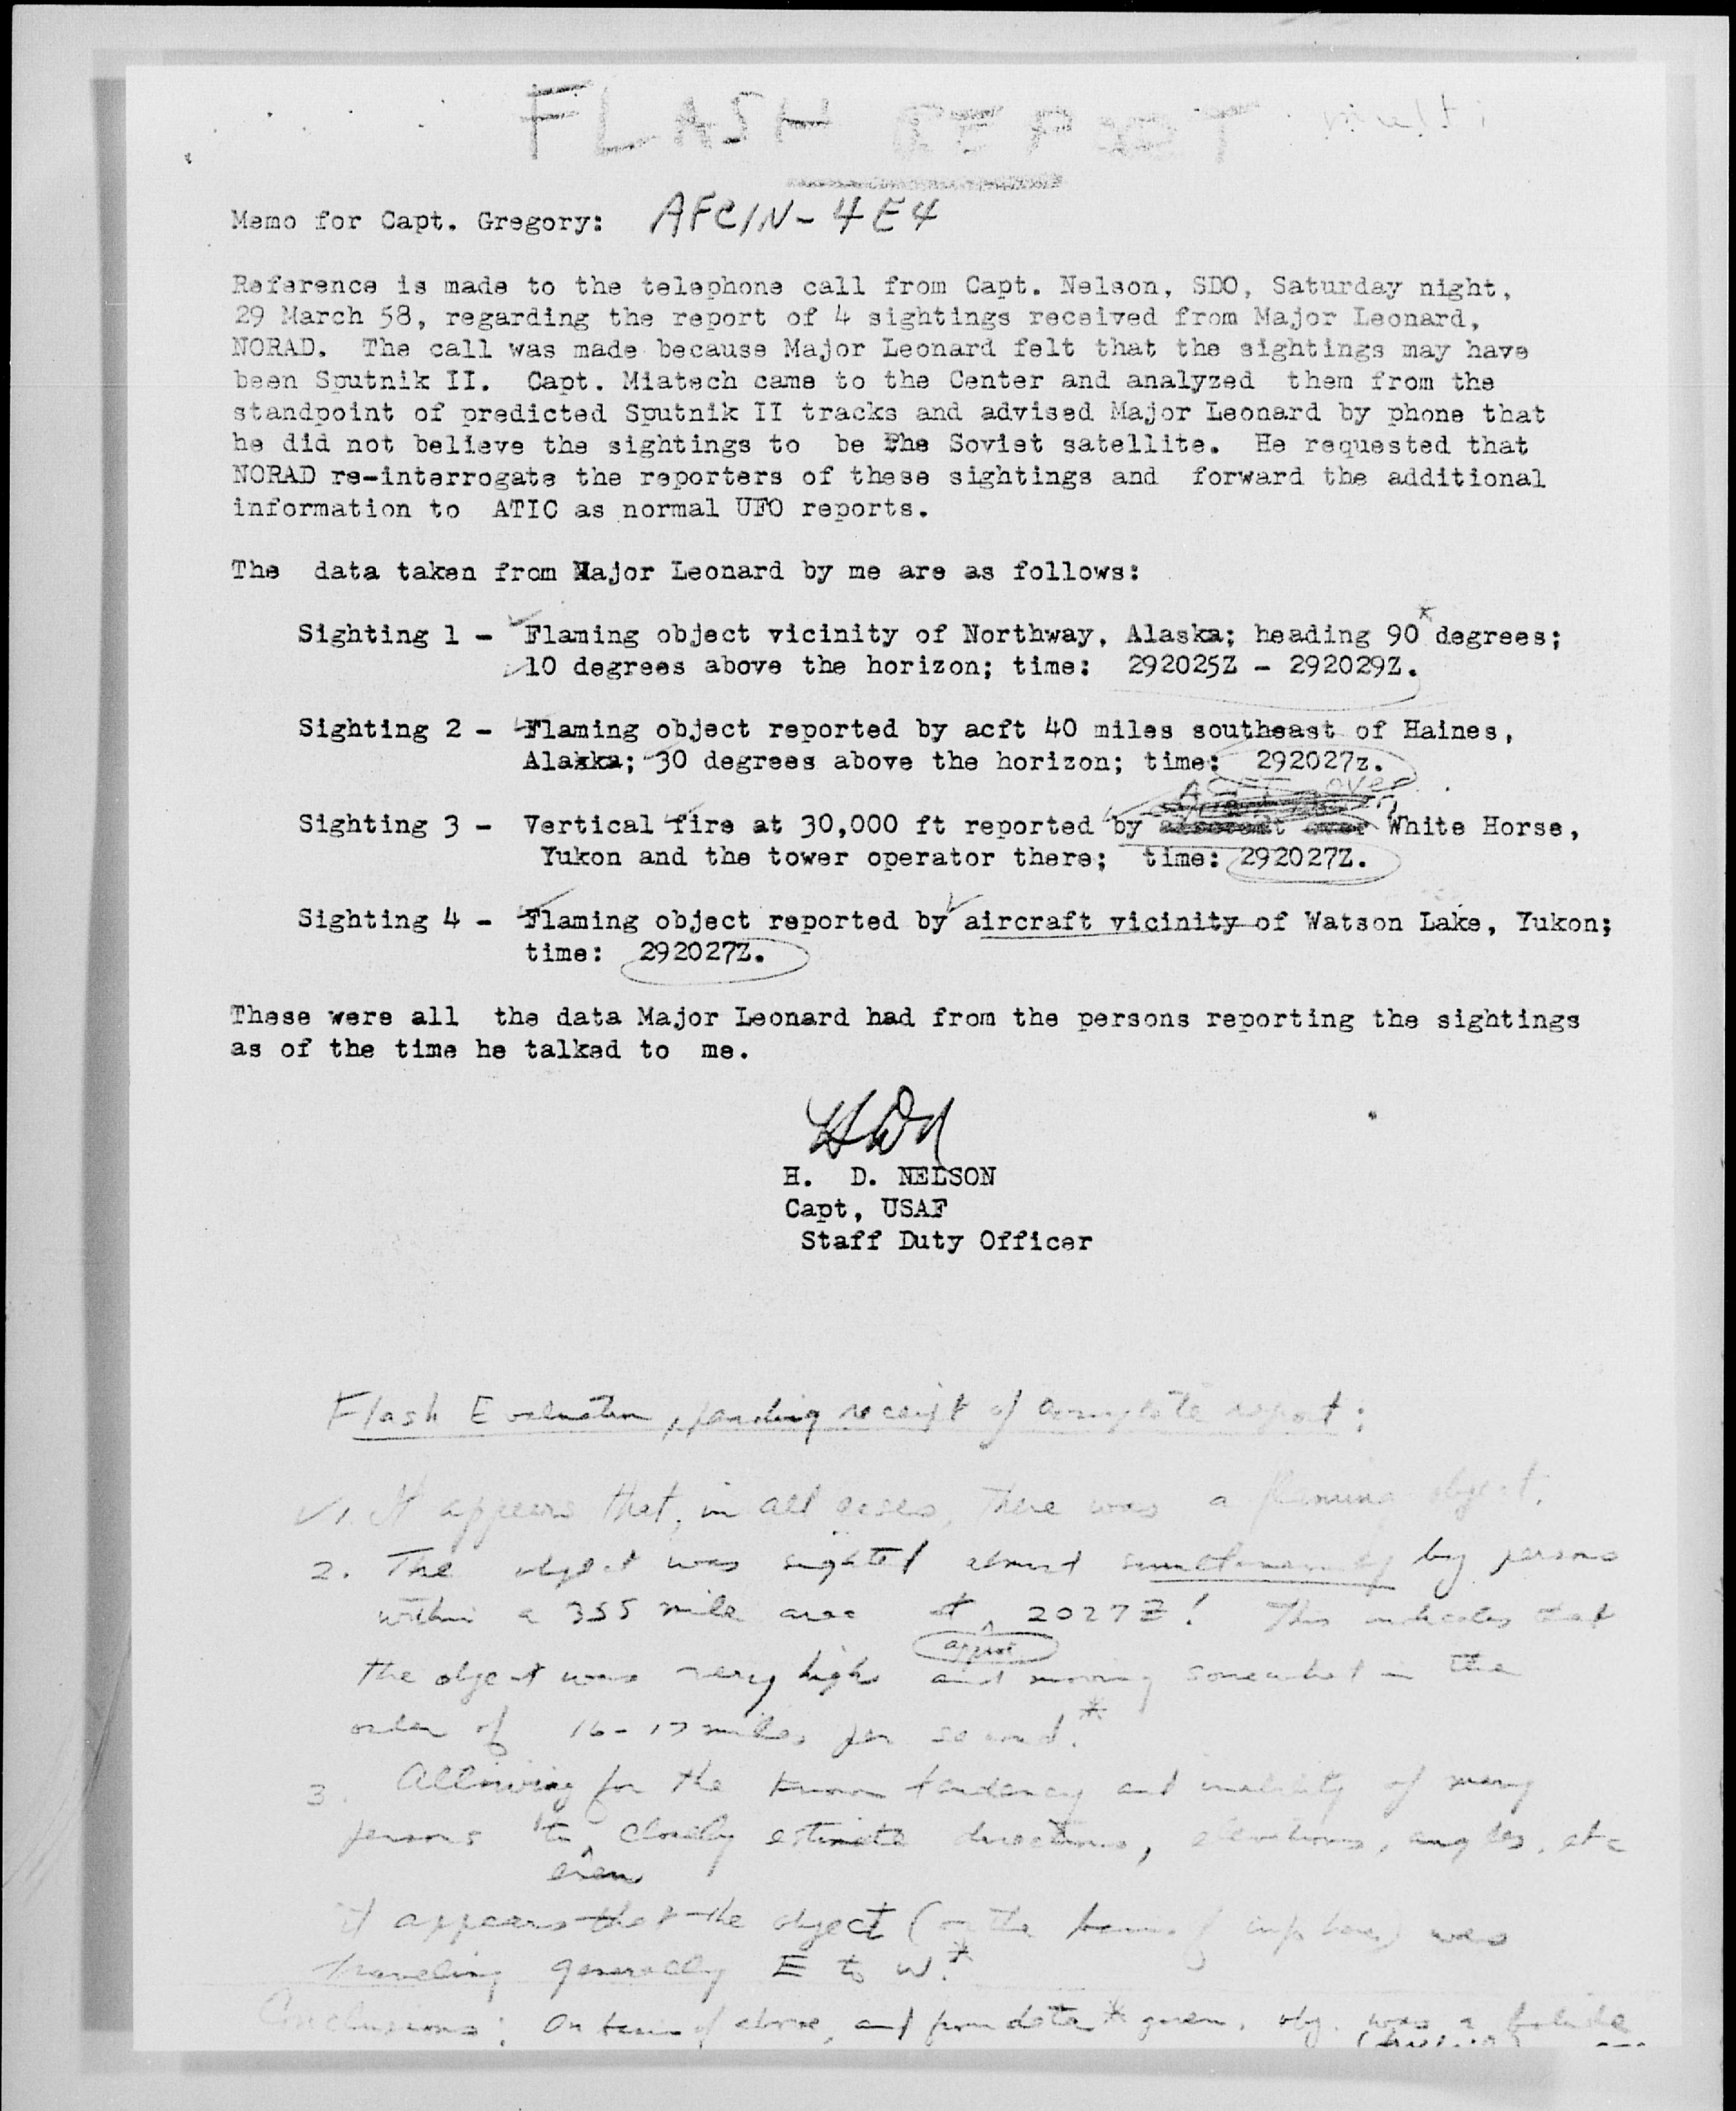 FLASH REPORT multi
Memo for Capt. Gregory: AFCIN-4E4
Reference is made to the telephone call from Capt. Nelson, SDO, Saturday night,
29 March 58, regarding the report of 4 sightings received from Major Leonard,
NORAD. The call was made because Major Leonard felt that the sightings may have
been Sputnik II. Capt. Miatech came to the Center and analyzed them from the
standpoint of predicted Sputnik II tracks and advised Major Leonard by phone that
he did not believe the sightings to be the Soviet satellite. He requested that
NORAD re-interrogate the reporters of these sightings and forward the additional
information to ATIC as normal UFO reports.
The data taken from Major Leonard by me are as follows:
Sighting 1 - Flaming object vicinity of Northway, Alaska; heading 90* degrees;
10 degrees above the horizon; time: 292025Z - 292029Z.
Sighting 2 - Flaming object reported by acft 40 miles southeast of Haines,
Alakka; 30 degrees above the horizon; time: 292027z.
over
Sighting 3 - Vertical fire at 30,000 ft reported by White Horse,
Yukon and the tower operator there; time: 292027Z.
Sighting 4 - Flaming object reported by aircraft vicinity of Watson Lake, Yukon;
time: 292027Z.
These were all the data Major Leonard had from the persons reporting the sightings
as of the time he talked to me.
HDN
H. D. NELSON
Capt, USAF
Staff Duty Officer
Flash Evaluation, pending receipt of complete report:
1. It appears that, in all cases, there was a flaming object.
2. The object was sighted almost simultaneously by persons
within a 355 mile area at 2027Z! This indicates that
approx
the object was very high and moving somewhat in the
order of 16-17 miles per second.*
3. Allowing for the known tendency and inability of many
persons to closely estimate directions, elevations, angles, etc
even
it appears that the object (on the basis of info have) was
traveling generally E to W.*
Conclusions: On basis of above, and from data* given, obj. was a bolide